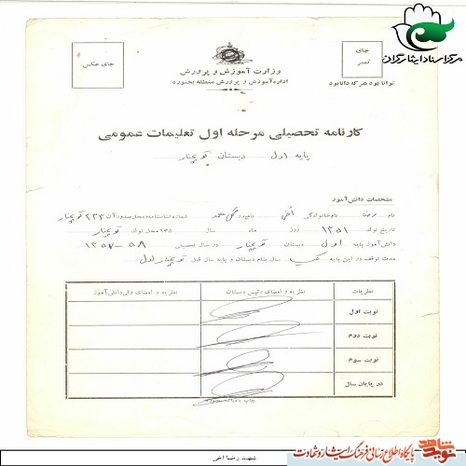 جای عکس
جای تمبر
مرکز اسناد ایثارگران
وزارت آموزش و پرورش
اداره آموزش و پرورش منطقه بجنورد
توانا بود هر که دانا بود
کارنامه تحصیلی مرحله اول تعلیمات عمومی
پایه اول دبستان قوچنار
مشخصات دانش‌آموز
نام رضا نام خانوادگی اخی نام پدر گل محمد شماره شناسنامه و محل صدور آن ۲۳۳ قوچنار
تاریخ تولد ۱۳۵۱ روز ماه سال ۱۳۵ محل تولد قوچنار
دانش‌آموز پایه اول دبستان قوچنار در سال تحصیلی ۵۸-۱۳۵۷
مدت توقف در این پایه یک سال بنام دبستان و پایه سال قبل قوچنار اول
نظریات نظریه و امضای رئیس دبستان نظریه و امضای ولی دانش‌آموز
نوبت اول
نوبت دوم
نوبت سوم
در پایان سال
نوید شاهد پایگاه اطلاع رسانی فرهنگ ایثار و شهادت
شهید رضا اخی